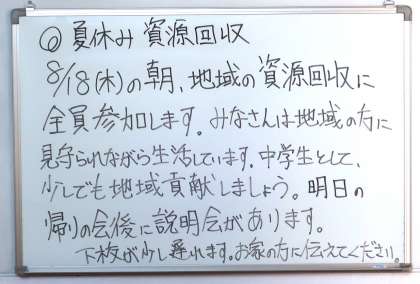 ◎夏休み資源回収
8/18(木)の朝、地域の資源回収に
全員参加します。みなさんは地域の方に
見守られながら生活しています。中学生として、
少しでも地域貢献しましょう。明日の
帰りの会後に説明会があります。
下校が少し遅れます。お家の方に伝えてください。